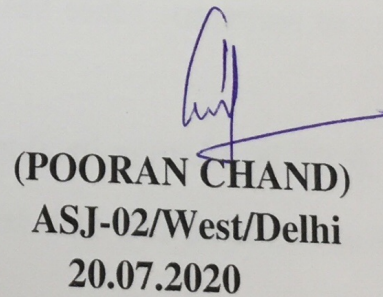 (POORAN CHAND)
ASJ-02/West/Delhi
20.07.2020